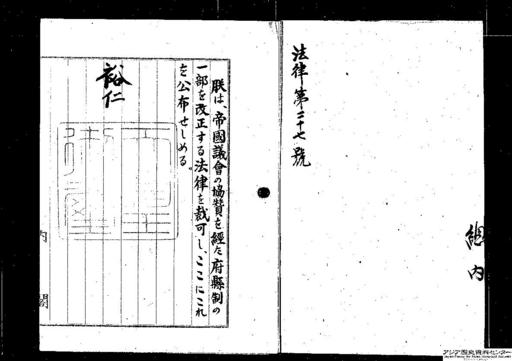 法律第二十七號
總内
朕は、帝國議會の協賛を經た府縣制の
一部を改正する法律を裁可し、ここにこれ
を公布せしめる。
裕仁
内閣
アジア歴史資料センター